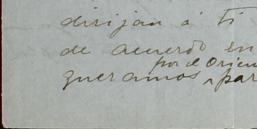 dirijan á ti
de acuerdo en
por el Orien
queramos par